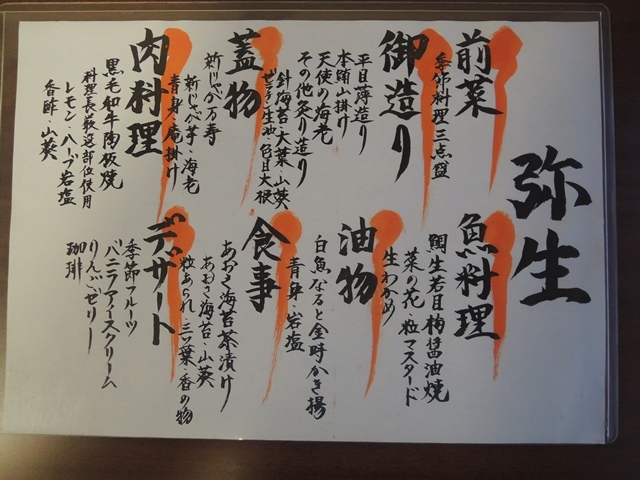 弥生
前菜
季節料理三点盛
御造り
平目薄造り
本鮪山掛け
天使の海老
その他炙り造り
針海苔・大葉・山葵
蓋物
新じゃが万寿
新じゃが芋・海老
青身・庵掛け
肉料理
黒毛和牛陶板焼
料理長厳選部位使用
レモン・ハーブ岩塩
香酢・山葵
魚料理
鯛生若目梅醤油焼
菜の花・粒マスタード
生わかめ
油物
白魚なると金時かき揚
青身・岩塩
食事
あおさ海苔茶漬け
あおさ海苔・山葵
粒あられ・三ツ葉・香の物
デザート
季節フルーツ
バニラアイスクリーム
りんごゼリー
珈琲